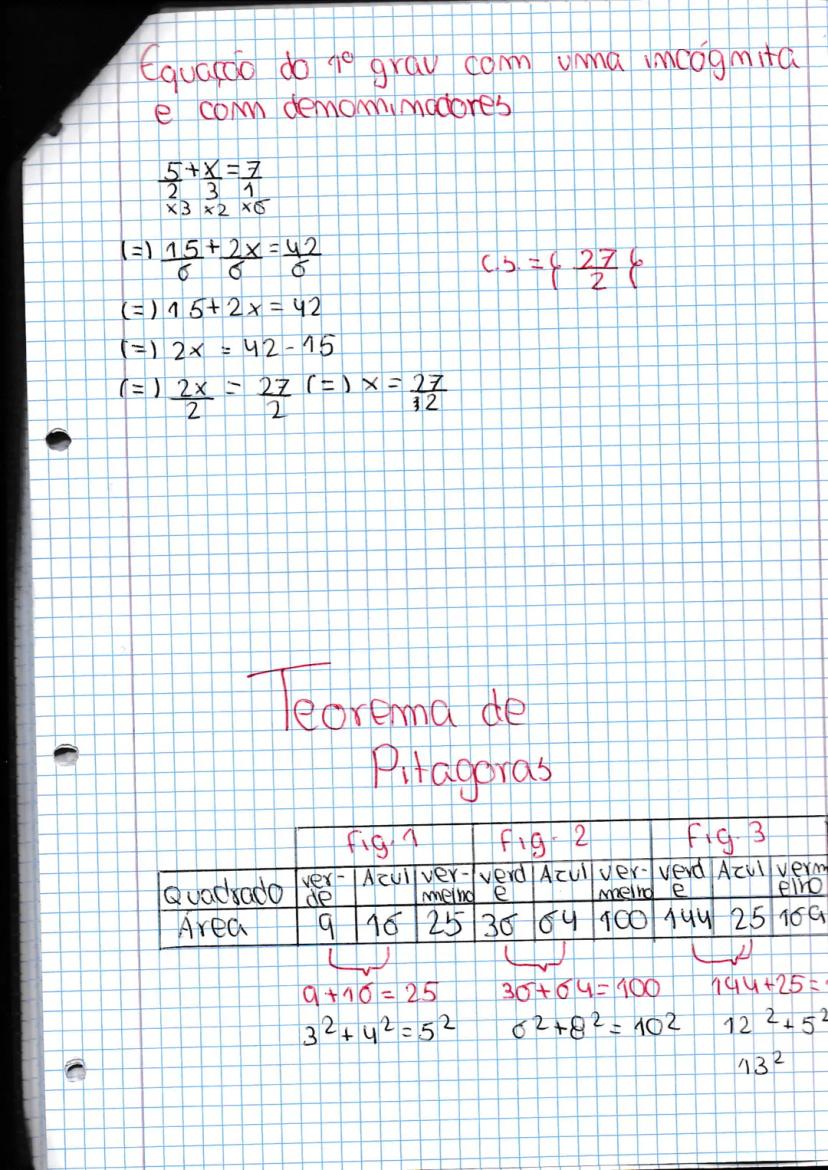 Equação do 1º grau com uma incógnita
e com denominadores
5/2 + x/3 = 7/1
×3 ×2 ×6
(=) 15/6 + 2x/6 = 42/6
C.S. = { 27/2 }
(=) 15 + 2x = 42
(=) 2x = 42 - 15
(=) 2x/2 = 27/2 (=) x = 27/2
Teorema de
Pitagoras
Fig. 1 Fig. 2 Fig. 3
Quadrado ver-de Azul ver-melho verde Azul ver-melho verde Azul vermelho
Área 9 16 25 36 64 100 144 25 169
9 + 16 = 25 36 + 64 = 100 144 + 25 =
3² + 4² = 5² 6² + 8² = 10² 12² + 5²
13²